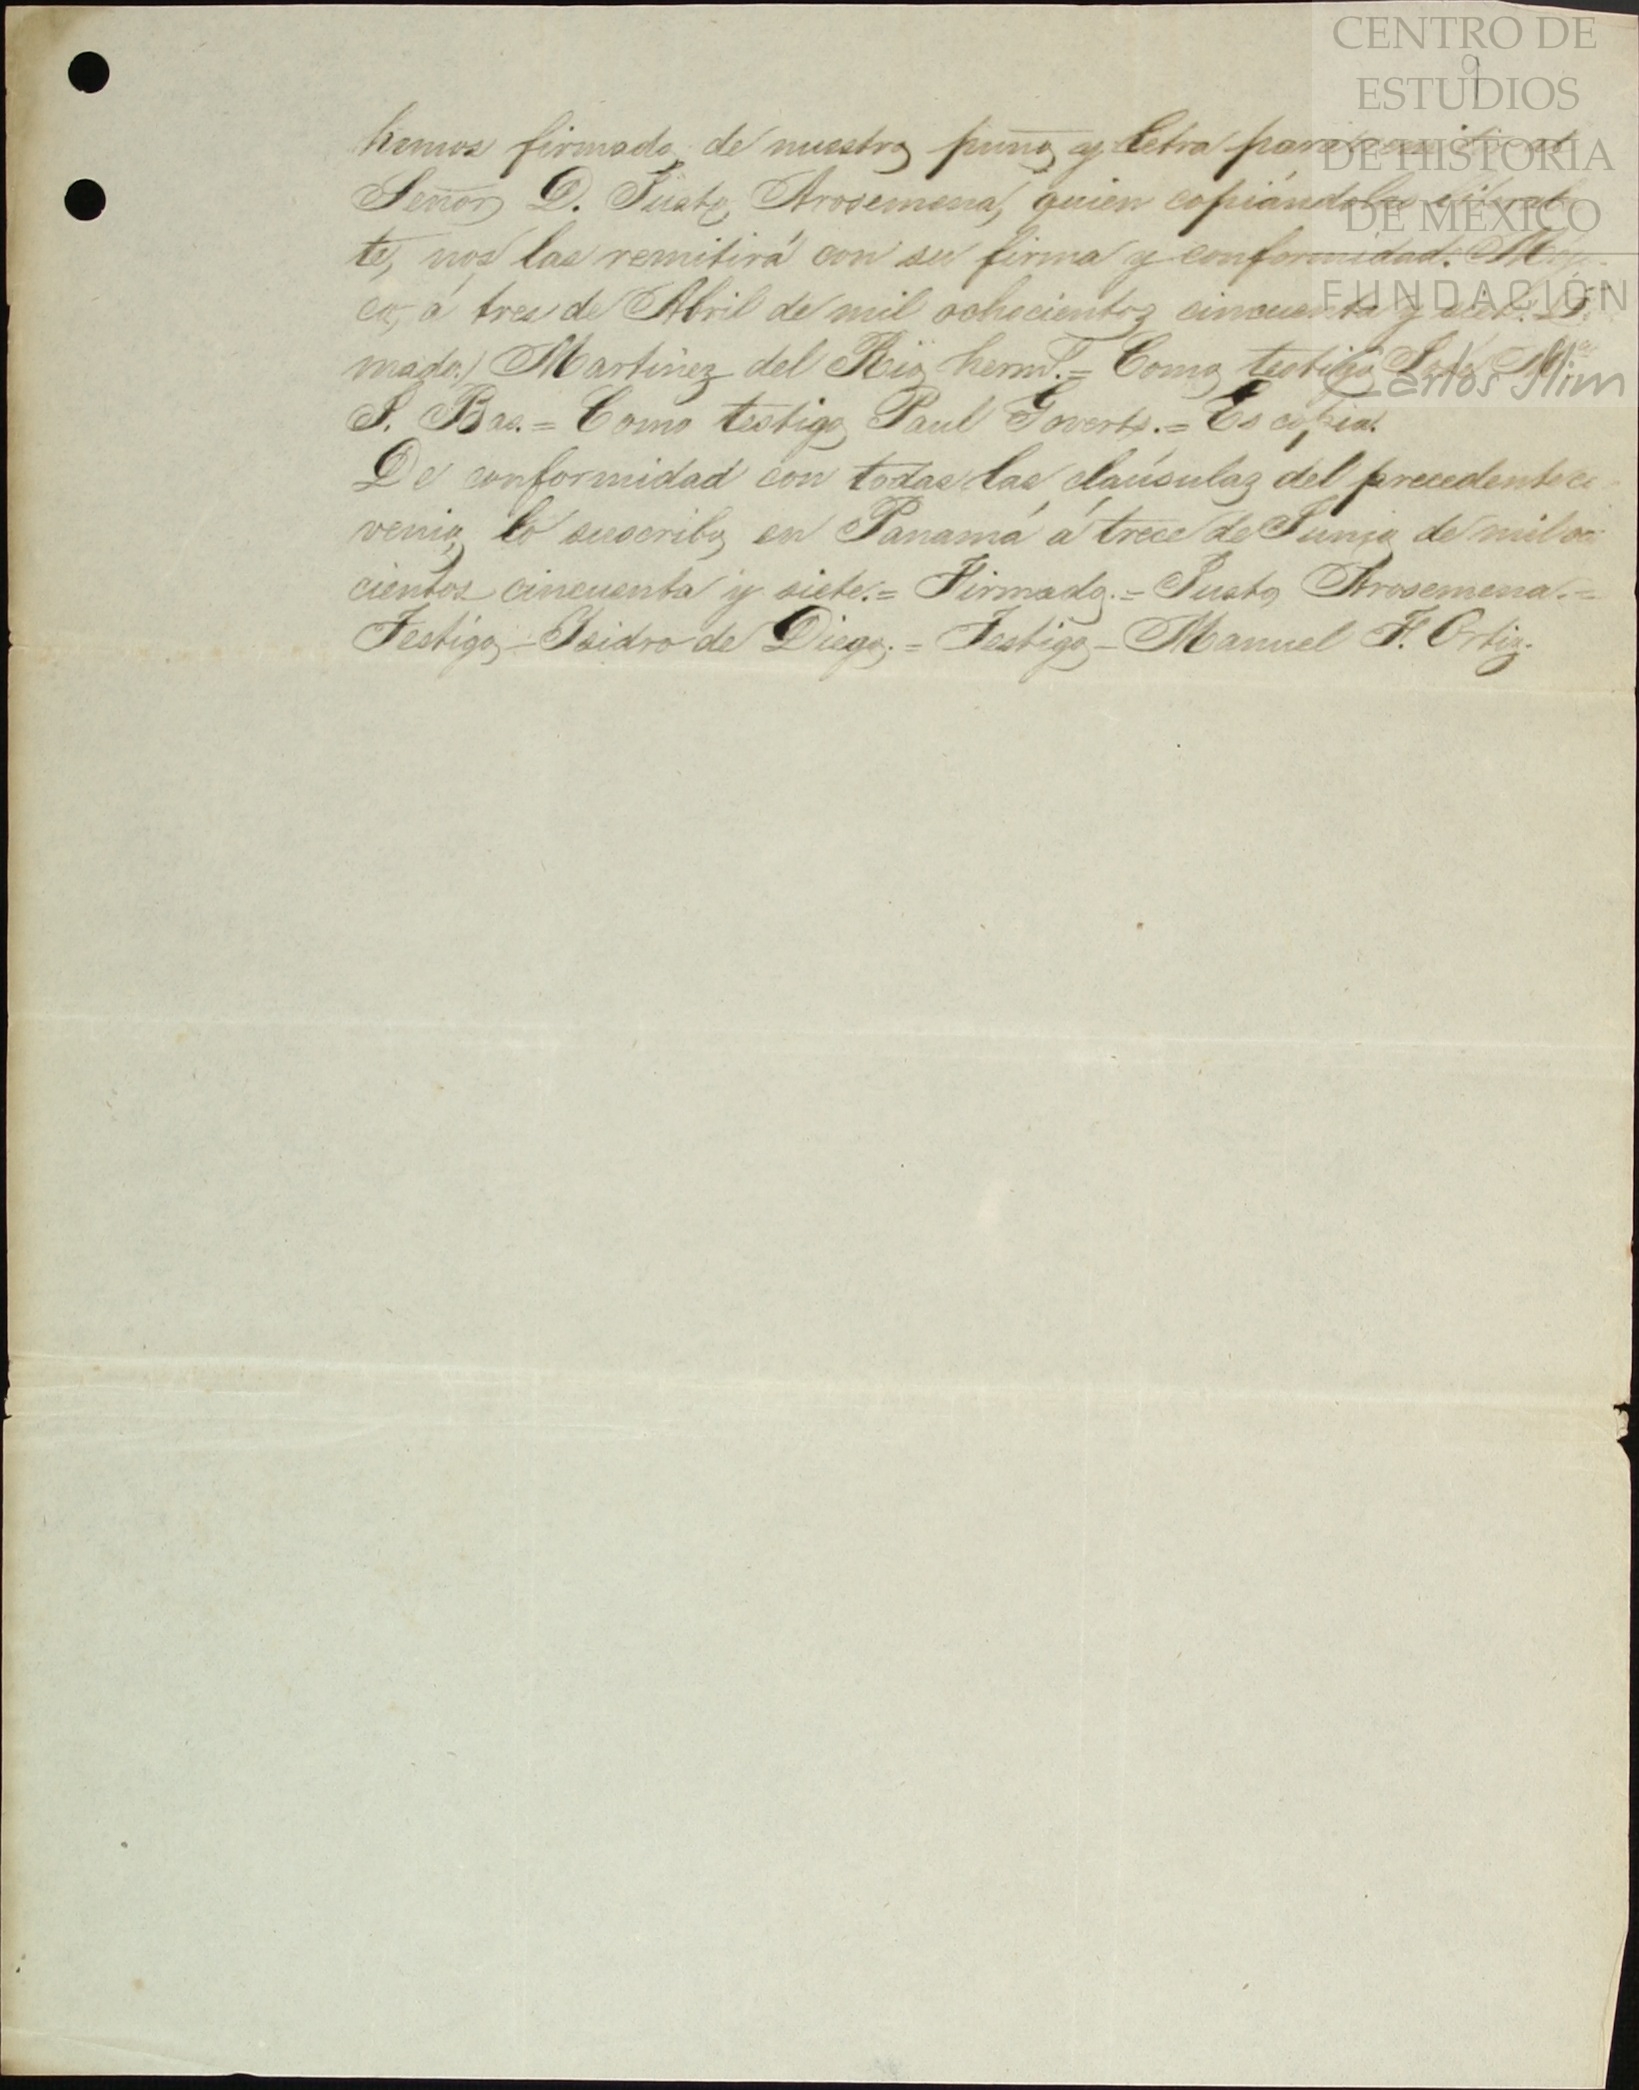 CENTRO DE
ESTUDIOS
DE HISTORIA
DE MÉXICO
FUNDACIÓN
Carlos Slim
9
hemos firmado de nuestro puño y letra para remitir al
Señor D. Justo Arosemena, quien copiándolas literalmen
te, nos las remitirá con su firma y conformidad. Méji-
co, á tres de Abril de mil ochocientos cincuenta y siete. (Fir
mado.) Martinez del Rio herms.= Como testigo José Ma
S. Bas.= Como testigo Paul Goverts.= Es copia.
De conformidad con todas las claúsulas del precedente con
venio, lo suscribo en Panamá á trece de Junio de mil ocho
cientos cincuenta y siete.= Firmado.= Justo Arosemena.=
Testigo - Isidro de Diego.= Testigo - Manuel F. Ortiz.